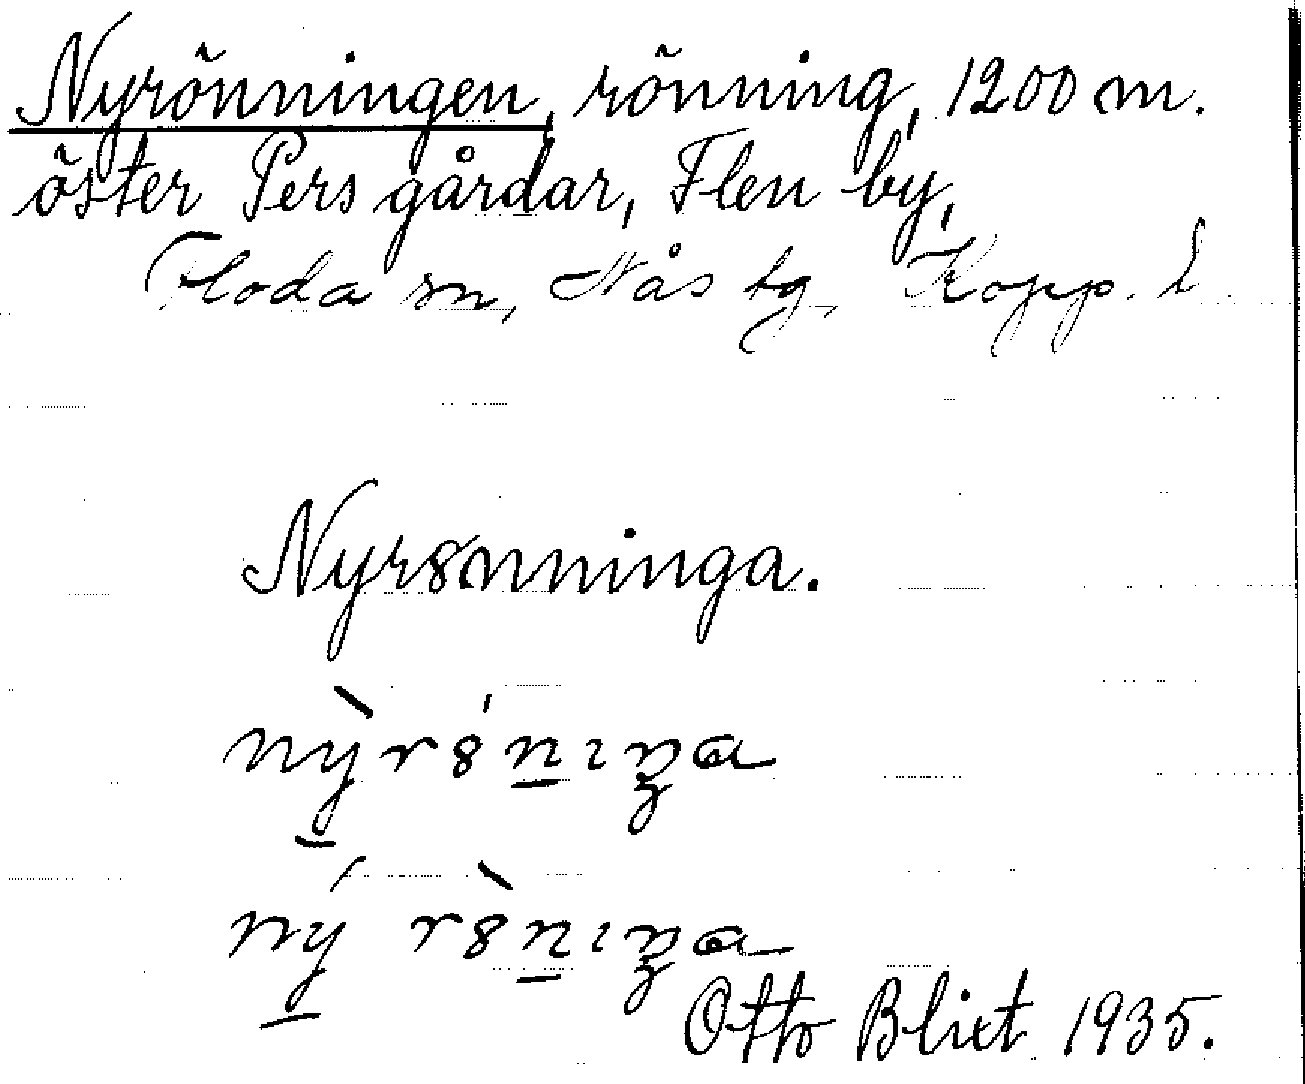 Nyrönningen, rönning, 1200 m.
öster Pers gårdar, Flen by,
Floda sn, Nås tg, Kopp. l
Nyr8nninga.
nỳr8́nıŋa
ný r8̀nıŋa
Otto Blixt 1935.